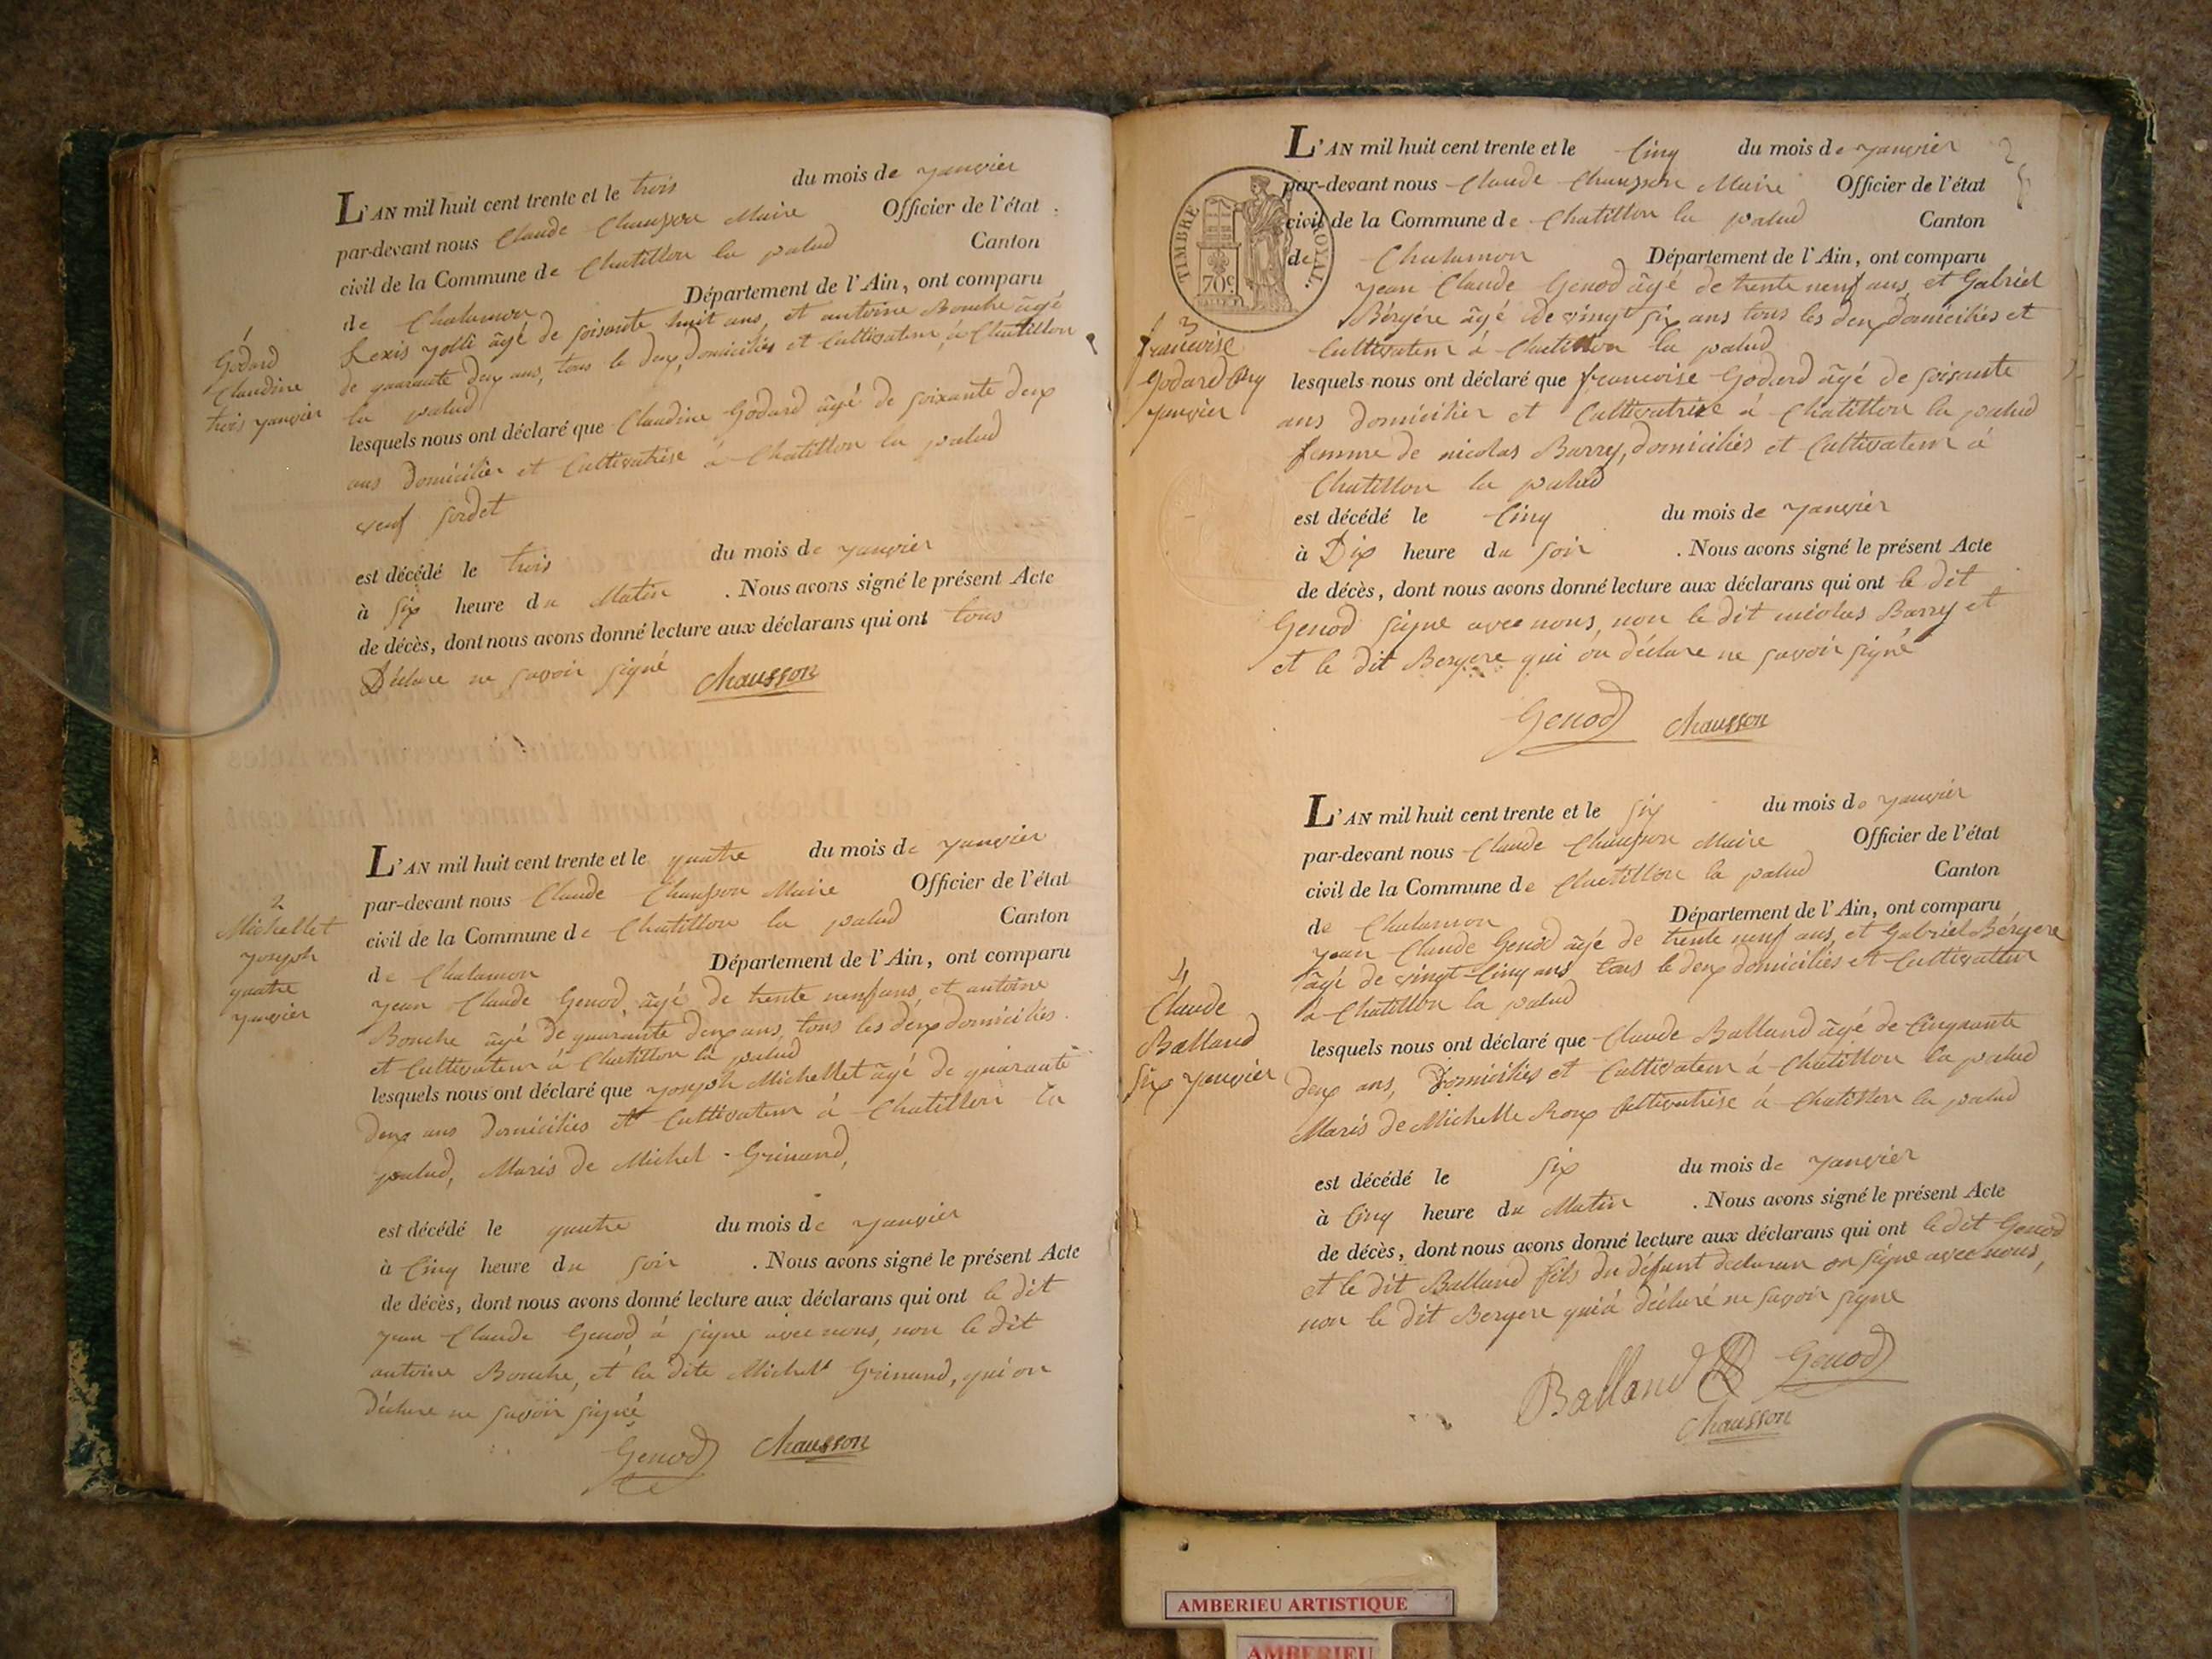 L'AN mil huit cent trente et le trois du mois de janvier
par-devant nous Claude Chausson Maire Officier de l'état
civil de la Commune de Chatillon la palud Canton
de Chalamon Département de l'Ain, ont comparu
âgé de soisante huit ans, et antoine Bouche âgé
de quarante deux ans, tous le deux domiciliés et Cultivateur à Chatillon
la palud
lesquels nous ont déclaré que Claudine Godard âgé de soixante deux
ans domicilier et Cultivatrise à Chatillon la palud
veuf
est décédé le trois du mois de janvier
à six heure du Matin . Nous avons signé le présent Acte
de décès, dont nous avons donné lecture aux déclarans qui ont tous
Déclare ne savoir signé Chausson
1
Godard
Claudine
trois janvier
L'AN mil huit cent trente et le quatre du mois de janvier
par-devant nous Claude Chausson Maire Officier de l'état
civil de la Commune de Chatillon la palud Canton
de Chalamon Département de l'Ain, ont comparu
jean Claude Genod, âgé de trente neuf ans, et antoine
Bouche âgé De quarante deux ans, tous les deux domiciliés
et Cultivateur à Chatillon la palud
lesquels nous ont déclaré que joseph Michellet âgé de quarante
deux ans domiciliés et Cultivateur à Chatillon la
palud, Maris de Michel Grinand,
est décédé le quatre du mois de janvier
à Cinq heure du soir . Nous avons signé le présent Acte
de décès, dont nous avons donné lecture aux déclarans qui ont le dit
jean Claude Genod, à signe avec nous, non le dit
antoine Bouche, et la dite Michell Grinand, qui on
déclare ne savoir signé
Genod Chausson
2
Michellet
joseph
quatre
janvier
L'AN mil huit cent trente et le Cinq du mois de janvier
par-devant nous Claude Chausson Maire Officier de l'état
civil de la Commune de Chatillon la palud Canton
de Chalamon Département de l'Ain, ont comparu
jean Claude Genod âgé de trente neuf ans, et Gabriel
Bérgére âgé de vingt six ans tous les deux domiciliés et
Cultivateur à Chatillon la palud
lesquels nous ont déclaré que francoise Godard âgé de soisante
ans domicilier et Cultivatrise à Chatillon la palud
femme de nicolas Barry, domiciliés et Cultivateur à
Chatillon la palud
est décédé le Cinq du mois de janvier
à Dix heure du soir . Nous avons signé le présent Acte
de décès, dont nous avons donné lecture aux déclarans qui ont le dit
Genod signe avec nous, non le dit nicolas Barry et
et le dit Bergere qui on déclare ne savoir signé
Genod Chausson
TIMBRE ROYAL.
70c
3
francoise
Godard
janvier
2
L'AN mil huit cent trente et le six du mois de janvier
par-devant nous Claude Chausson Maire Officier de l'état
civil de la Commune de Chatillon la palud Canton
de Chalamon Département de l'Ain, ont comparu
jean Claude Genod âgé de trente neuf ans, et Gabriel Bérgere
âgé de vingt-Cinq ans, tous le deux domiciliés et Cultivateur
à Chatillon la palud
lesquels nous ont déclaré que Claude Balland âgé de Cinquante
deux ans, Domiciliés et Cultivateur à Chatillon la palud
Maris de Michelle Roux Cultivatrise à Chatillon la palud
est décédé le six du mois de janvier
à Cinq heure du Matin . Nous avons signé le présent Acte
de décès, dont nous avons donné lecture aux déclarans qui ont le dit Genod
et le dit Balland fils du défunt on signe avec nous,
non le dit Bergere qui à déclaré ne savoir signe
Balland Genod
Chausson
4
Claude
Balland
six janvier
AMBERIEU ARTISTIQUE
AMBERIEU